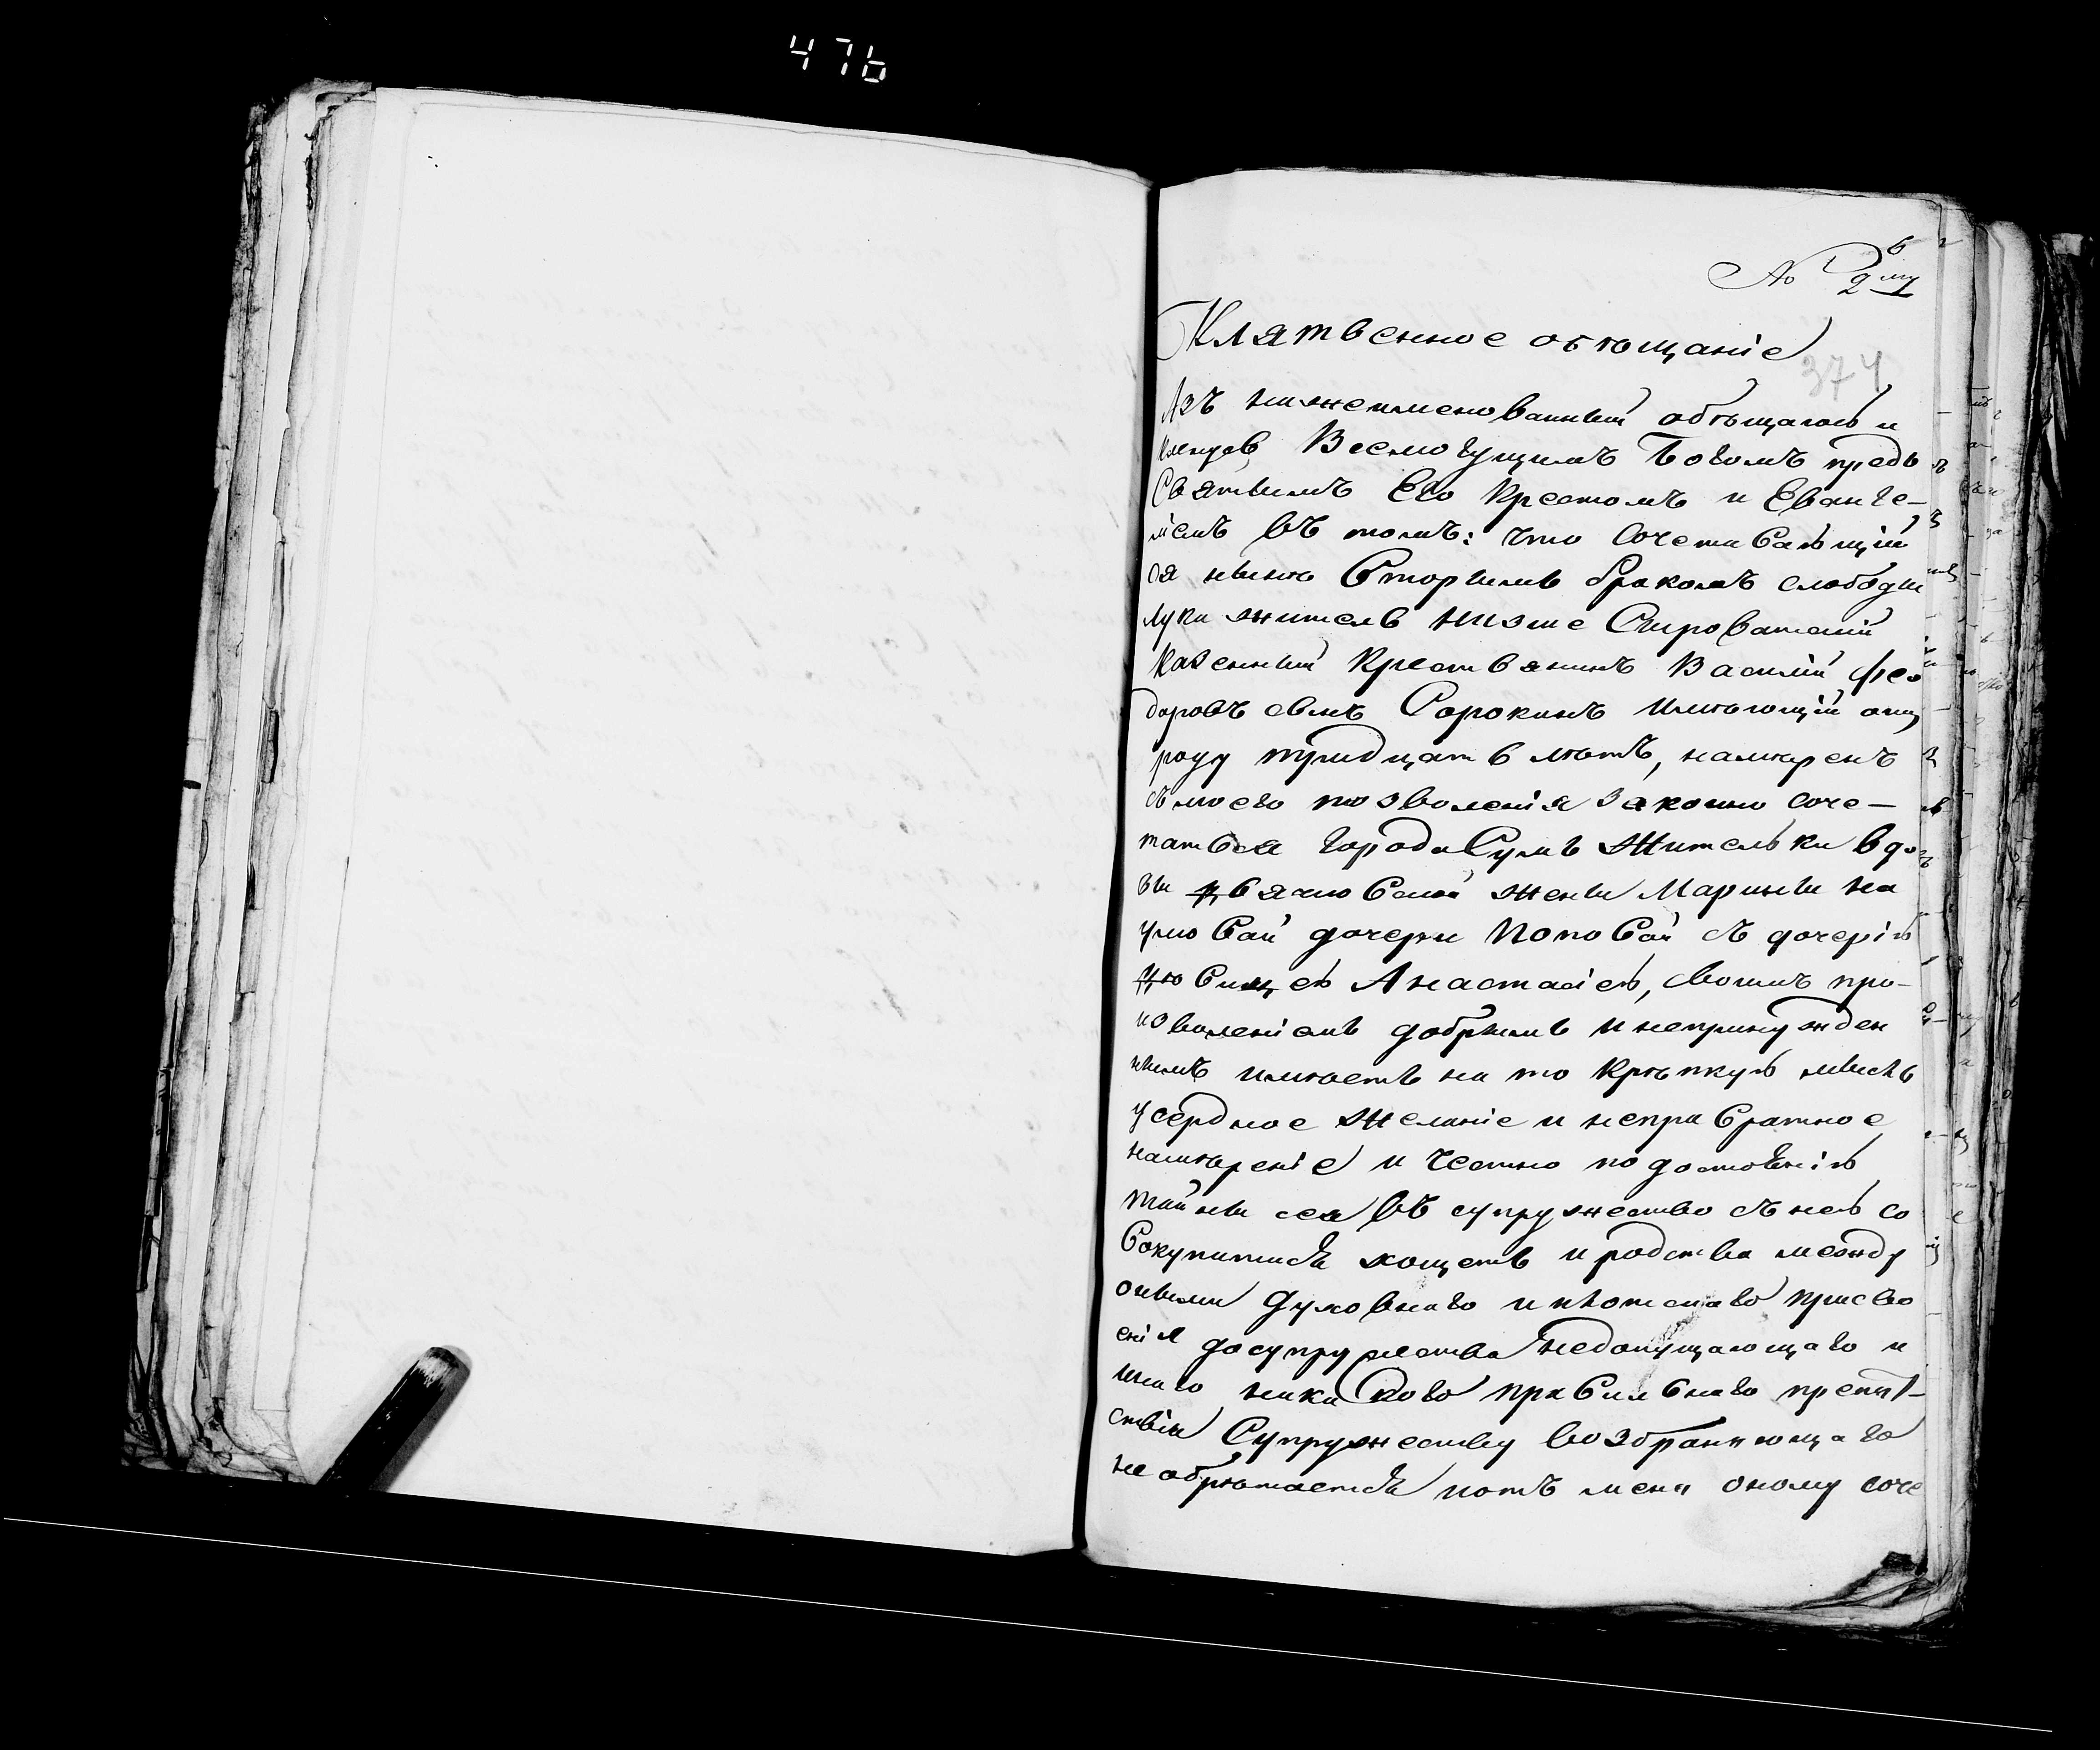 476
6
№ 2му
Клятвенное обѣщаніе
374
Азъ нижеименованный обѣщаюсь и
кленусь Всемогущимъ Богомъ предъ
Святымъ Его Крестомъ и Еванге-
ліемъ въ томъ: что Сочетавающій
ся нынѣ Вторымъ бракомъ слободы
Луки житель низше Сыроватский
Казенный Крестьянинъ Василій Фео
доровъ сынъ Сорокинъ имѣющій отъ
роду тридцать лѣтъ, намѣренъ
съ моего позволенія Законно соче-
таться города Сумъ Жительки вдо
вы жены Марины На
умовой дочери Поповой съ дочерію
Анастасіею, своимъ про-
изволеніемъ добрымъ и непринужден
нымъ имѣетъ на то Крѣпкую мысль
усердное Желаніе и непривратное
намѣреніе и Честно по достоянію
тайны сея въ супружество съ нею со
вокупитися хощетъ и родства между
оными духовнаго и плотскаго присво
енія до супружества недопущающаго и
инаго никакового правильнаго препят-
ствія Супружеству возбраняющаго
не обрѣтается и отъ меня оному соче